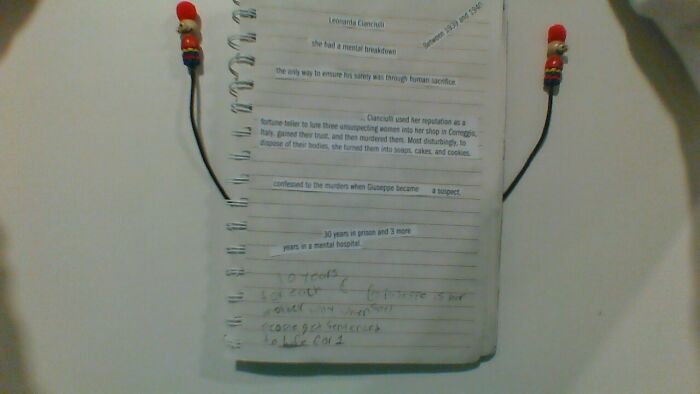 Leonarda Cianciulli
Between 1939 and 1940
she had a mental breakdown
the only way to ensure his safety was through human sacrifice.
Cianciulli used her reputation as a
fortune-teller to lure three unsuspecting women into her shop in Correggio,
Italy, gained their trust, and then murdered them. Most disturbingly, to
dispose of their bodies, she turned them into soaps, cakes, and cookies.
confessed to the murders when Giuseppe became a suspect,
30 years in prison and 3 more
years in a mental hospital.
years
is her
son
sentenced
to life for 1